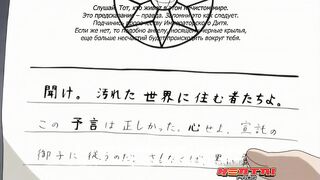 Слушай. Тот, кто живёт в этом нечистом мире.
Это предсказание – правда. Запомни это как следует.
Подчинись пророчеству Императорского Дитя.
Если же нет, то подобно ангелу, носящему чёрные крылья,
еще больше несчастий будет происходить вокруг тебя.
聞け。汚れた世界に住む者たちよ。
この予言は正しかった。心せよ。宣託の
御子に従うのだ。さもなくば、